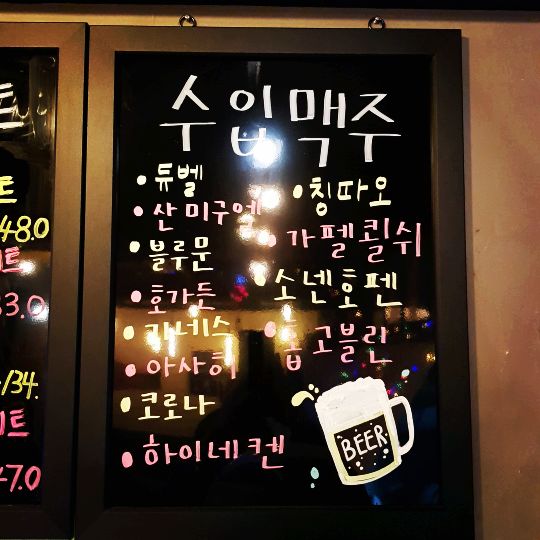 수입맥주
• 듀벨
• 산미구엘
• 블루문
• 호가든
• 아사히
• 코로나
• 하이네켄
• 칭따오
• 가펠쾰쉬
• 소넨호펜
• 홉고블린
BEER
48.0
33.0
/34.
47.0